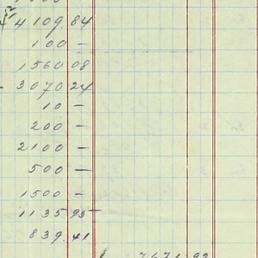 4109 84
100 —
1560 08
3070 24
10 —
200 —
2100 —
500 —
1500 —
1135 95
839.41
7671 93